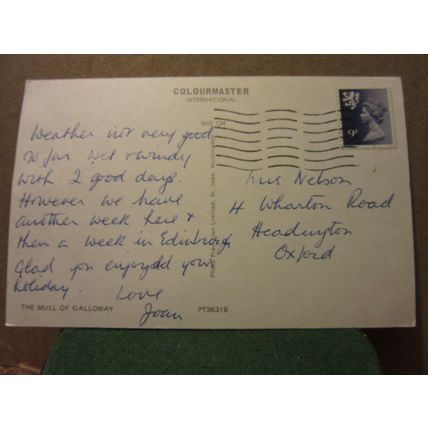 COLOURMASTER
INTERNATIONAL
9p
Weather not very good
so far wet & windy
with 2 good days.
However we have
another week here &
then a week in Edinburgh
Glad you enjoyed your
holiday.
Love
Joan
Nelson
4 Wharton Road
Headington
Oxford
THE MULL OF GALLOWAY
PT36318